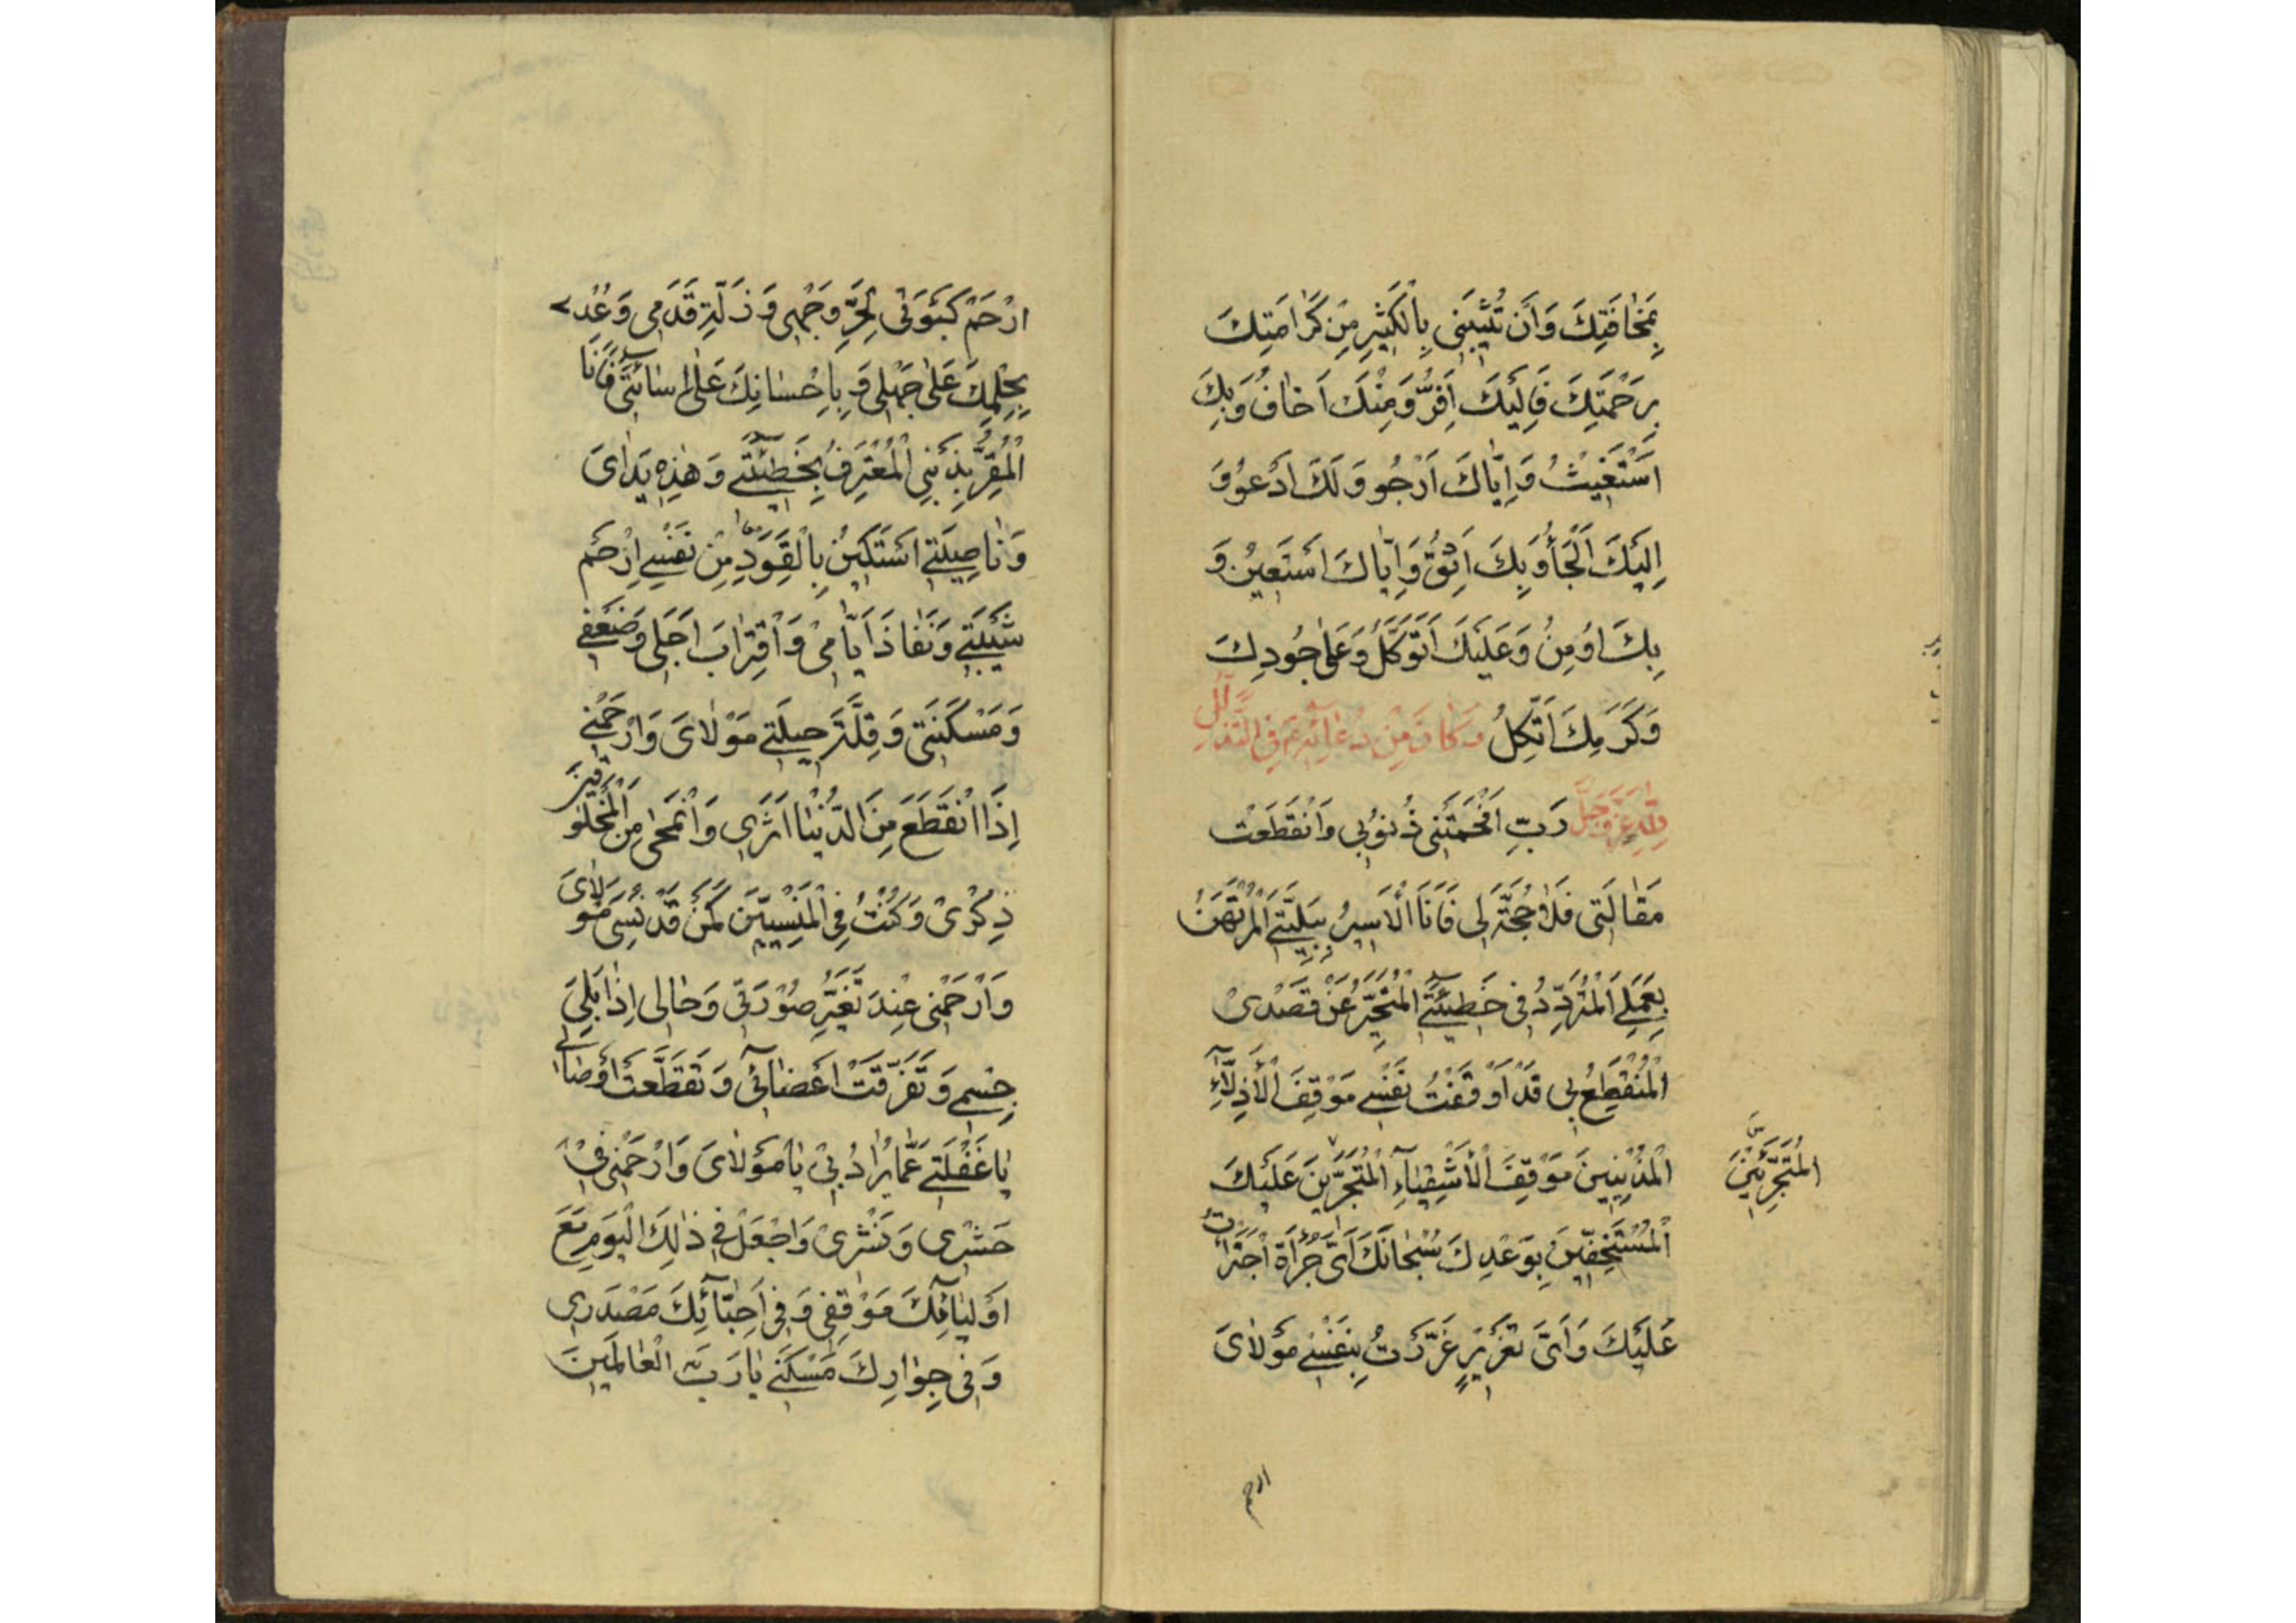 بِمَخَافَتِكَ وَاَنْ تُثِيبَنِي بِالْكَثِيرِ مِنْ كَرَامَتِكَ
بِرَحْمَتِكَ فَاِلَيْكَ اَفِرُّ وَمِنْكَ اَخَافُ وَبِكَ
اَسْتَغِيثُ وَاِيَّاكَ اَرْجُو وَلَكَ اَدْعُو وَ
اِلَيْكَ اَلْجَأُ وَبِكَ اَثِقُ وَاِيَّاكَ اَسْتَعِينُ وَ
بِكَ اُومِنُ وَعَلَيْكَ اَتَوَكَّلُ وَعَلٰى جُودِكَ
وَكَرَمِكَ اَتَّكِلُ وَكَانَ مِنْ دُعَائِهِ ع فِي التَّذَلُّلِ
لِلّٰهِ عَزَّ وَجَلَّ رَبِّ اَفْحَمَتْنِي ذُنُوبِي وَانْقَطَعَتْ
مَقَالَتِي فَلَا حُجَّةَ لِي فَاَنَا الْاَسِيرُ بِبَلِيَّتِي الْمُرْتَهَنُ
بِعَمَلِي الْمُتَرَدِّدُ فِي خَطِيئَتِي الْمُتَحَيِّرُ عَنْ قَصْدِي
الْمُنْقَطِعُ بِي قَدْ اَوْقَفْتُ نَفْسِي مَوْقِفَ الْاَذِلَّاءِ
الْمُذْنِبِينَ مَوْقِفَ الْاَشْقِيَاءِ الْمُتَجَرِّينَ عَلَيْكَ
الْمُتَجَرِّئِينَ
الْمُسْتَخِفِّينَ بِوَعْدِكَ سُبْحَانَكَ اَيَّ جُرْأَةٍ اجْتَرَأْتُ
عَلَيْكَ وَاَيَّ تَغْرِيرٍ غَرَّرْتُ بِنَفْسِي مَوْلَايَ
ارحم
ارْحَمْ كَبْوَتِي لِحُرِّ وَجْهِي وَزَلَّةِ قَدَمِي وَعُدْ
بِحِلْمِكَ عَلٰى جَهْلِي وَبِاِحْسَانِكَ عَلٰى اِسَائَتِي فَاَنَا
الْمُقِرُّ بِذَنْبِي الْمُعْتَرِفُ بِخَطِيئَتِي وَهٰذِهِ يَدَايَ
وَنَاصِيَتِي اَسْتَكِينُ بِالْقَوَدِ مِنْ نَفْسِي اِرْحَمْ
شَيْبَتِي وَنَفَاذَ اَيَّامِي وَاقْتِرَابَ اَجَلِي وَضَعْفِي
وَمَسْكَنَتِي وَقِلَّةَ حِيلَتِي مَوْلَايَ وَارْحَمْنِي
اِذَا انْقَطَعَ مِنَ الدُّنْيَا اَثَرِي وَانْمَحٰى مِنَ الْمَخْلُوقِينَ
ذِكْرِي وَكُنْتُ فِي الْمَنْسِيِّينَ كَمَنْ قَدْ نُسِيَ مَوْلَايَ
وَارْحَمْنِي عِنْدَ تَغَيُّرِ صُورَتِي وَحَالِي اِذَا بَلِيَ
جِسْمِي وَتَفَرَّقَتْ اَعْضَائِي وَتَقَطَّعَتْ اَوْصَالِي
يَا غَفْلَتِي عَمَّا يُرَادُ بِي يَا مَوْلَايَ وَارْحَمْنِي فِي
حَشْرِي وَنَشْرِي وَاجْعَلْ فِي ذٰلِكَ الْيَوْمِ مَعَ
اَوْلِيَائِكَ مَوْقِفِي وَفِي اَحِبَّائِكَ مَصْدَرِي
وَفِي جِوَارِكَ مَسْكَنِي يَا رَبَّ الْعَالَمِينَ